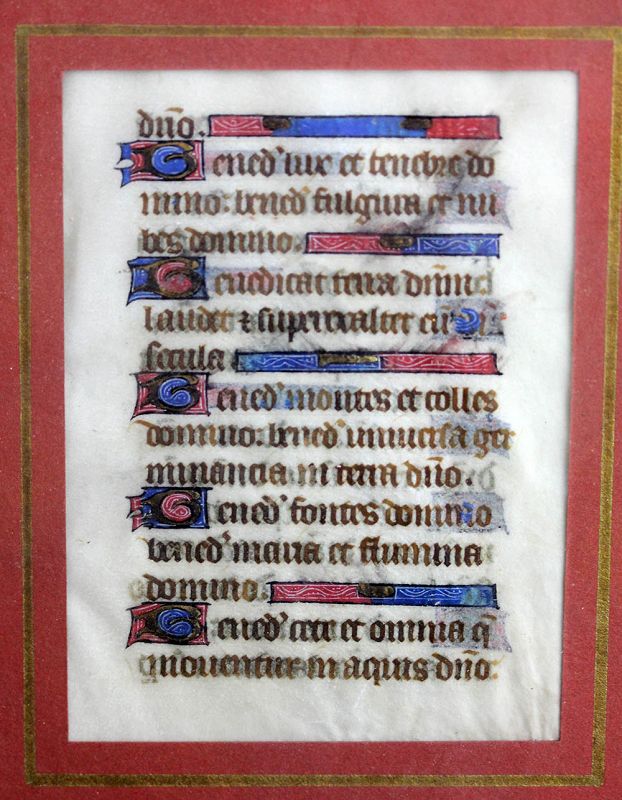 dño.
Bened' lux et tenebre do
mino: bened' fulgura et nu
bes domino.
Benedicat terra dñm:
laudet ⁊ superexaltet eū in
secula
Bened' montes et colles
domino: bened' uniuersa ger
minancia in terra dño.
Bened' fontes domino
bened' maria et flumina
domino.
Bened' cete et omnia q̄
mouentur in aquis dño.